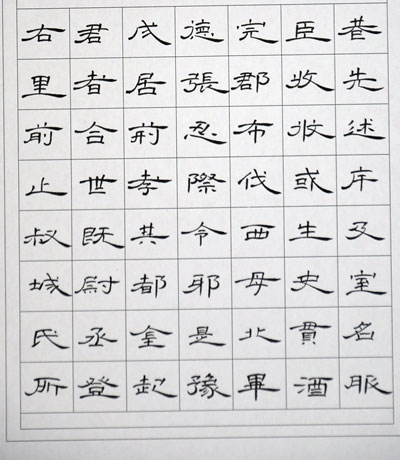 右君成德完臣巷
里者居張郡收先
前合荊忍布收述
止世孝際伐或序
叔既共令西生及
城尉都邪母史室
氏丞金是北貫名
所登起豫畢酒服